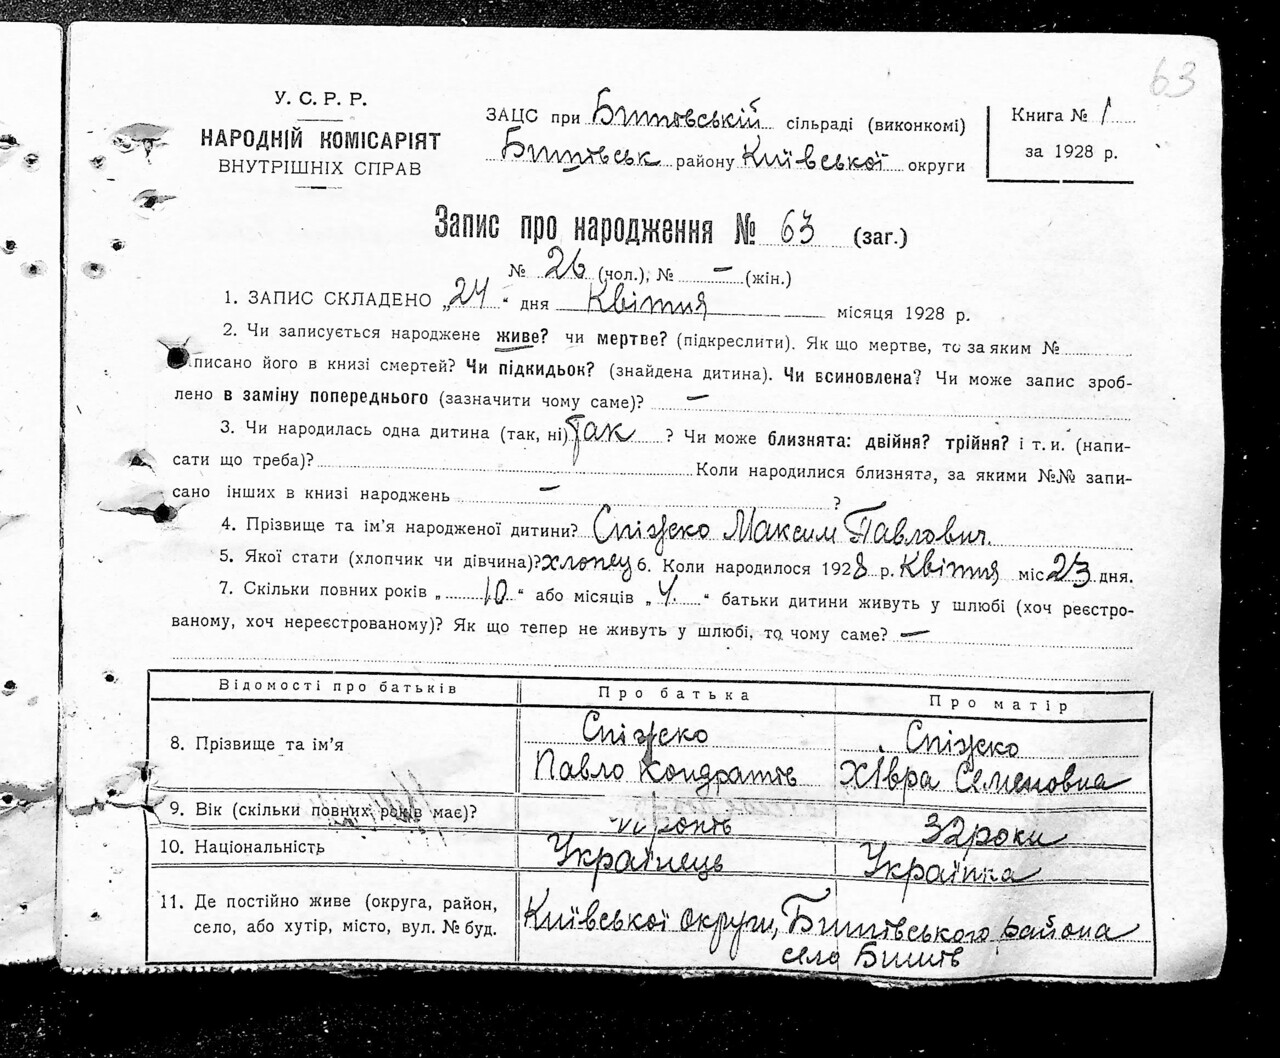 63
У. С. Р. Р.
НАРОДНІЙ КОМІСАРІЯТ
ВНУТРІШНІХ СПРАВ
ЗАЦС при Бишовській сільраді (виконкомі)
Бишівськ району Київської округи
Книга № 1
за 1928 р.
Запис про народження № 63 (заг.)
№ 26 (чол.), № — (жін.)
1. ЗАПИС СКЛАДЕНО „24“ дня Квітня місяця 1928 р.
2. Чи записується народжене живе? чи мертве? (підкреслити). Як що мертве, то за яким №
писано його в книзі смертей? Чи підкидьок? (знайдена дитина). Чи всиновлена? Чи може запис зроб-
лено в заміну попереднього (зазначити чому саме)? —
3. Чи народилась одна дитина (так, ні) так ? Чи може близнята: двійня? трійня? і т. и. (напи-
сати що треба)? Коли народилися близнята, за якими №№ запи-
сано інших в книзі народжень — ?
4. Прізвище та ім’я народженої дитини? Спіжко Максим Павлович.
5. Якої стати (хлопчик чи дівчина)? хлопец 6. Коли народилося 1928 р. Квітня міс 23 дня.
7. Скільки повних років „10“ або місяців „4“ батьки дитини живуть у шлюбі (хоч реєстро-
ваному, хоч нереєстрованому)? Як що тепер не живуть у шлюбі, то чому саме? —
Відомості про батьків Про батька Про матір
8. Прізвище та ім’я
Спіжко
Павло Кондратів
Спіжко
Хівра Семеновна
9. Вік (скільки повних років має)? 32 роки
10. Національність Українець Українка
11. Де постійно живе (округа, район,
село, або хутір, місто, вул. № буд.
Київської округи, Бишівського района
село Бишів